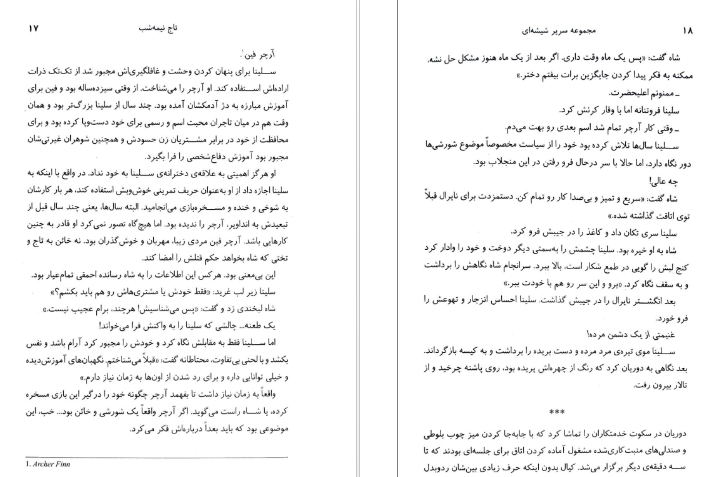 ۱۷
تاج نیمه‌شب
آرچر فین¹.
سلینا برای پنهان کردن وحشت و غافلگیری‌اش مجبور شد از تک‌تک ذرات
اراده‌اش استفاده کند. او آرچر را می‌شناخت. از وقتی سیزده‌ساله بود و فین برای
آموزش مبارزه به دژ آدمکشان آمده بود. چند سال از سلینا بزرگ‌تر بود و همان
وقت هم در میان تاجران محبت اسم و رسمی برای خود دست‌وپا کرده بود و برای
محافظت از خود در برابر مشتریان زن حسودش و همچنین شوهران غیرتی‌شان
مجبور بود آموزش دفاع‌شخصی را فرا بگیرد.
او هرگز اهمیتی به علاقه‌ی دخترانه‌ی سلینا به خود نداد. در واقع با اینکه به
سلینا اجازه داد از او به‌عنوان حریف تمرینی خوش‌وبش استفاده کند، هر بار کارشان
به شوخی و خنده و مسخره‌بازی می‌انجامید. البته سال‌ها، یعنی چند سال قبل از
تبعیدش به اندوویر، آرچر را ندیده بود. اما هیچ‌گاه تصور نمی‌کرد او قادر به چنین
کارهایی باشد. آرچر فین مردی زیبا، مهربان و خوش‌گذران بود. نه خائن به تاج و
تختی که شاه بخواهد حکم قتلش را امضا کند.
این بی‌معنی بود. هرکس این اطلاعات را به شاه رسانده احمقی تمام‌عیار بود.
سلینا زیر لب غرید: «فقط خودش یا مشتری‌هاش رو هم باید بکشم؟»
شاه لبخندی زد و گفت: «پس می‌شناسیش! هرچند، برام عجیب نیست.»
یک طعنه... چالشی که سلینا را به واکنش فرا می‌خواند!
اما سلینا فقط به مقابلش نگاه کرد و خودش را مجبور کرد آرام باشد و نفس
بکشد و با لحنی بی‌تفاوت، محتاطانه گفت: «قبلاً می‌شناختم. نگهبان‌های آموزش‌دیده
و خیلی توانایی داره و برای رد شدن از اون‌ها به زمان نیاز دارم.»
واقعاً به زمان نیاز داشت تا بفهمد آرچر چگونه خود را درگیر این بازی مسخره
کرده، یا شاه راست می‌گوید. اگر آرچر واقعاً یک شورشی و خائن بود... خب، این
موضوعی بود که باید بعداً درباره‌اش فکر می‌کرد.
1. Archer Finn
۱۸
مجموعه سریر شیشه‌ای
شاه گفت: «پس یک ماه وقت داری. اگر بعد از یک ماه هنوز مشکل حل نشه.
ممکنه به فکر پیدا کردن جایگزین برات بیفتم دختر.»
ـ ممنونم اعلیحضرت.
سلینا فروتنانه اما با وقار کرنش کرد.
ـ وقتی کار آرچر تمام شد اسم بعدی رو بهت می‌دم.
سلینا سال‌ها تلاش کرده بود خود را از سیاست مخصوصاً موضوع شورشی‌ها
دور نگاه دارد، اما حالا با سر درحال فرو رفتن در این منجلاب بود.
چه عالی!
شاه گفت: «سریع و تمیز و بی‌صدا کار رو تمام کن. دستمزدت برای نایرال قبلاً
توی اتاقت گذاشته شده.»
سلینا سری تکان داد و کاغذ را در جیبش فرو کرد.
شاه به او خیره بود. سلینا چشمش را به‌سمتی دیگر دوخت و خود را وادار کرد
کنج لبش را گویی در طمع شکار است، بالا ببرد. سرانجام شاه نگاهش را برداشت
و به سقف نگاه کرد. «برو و این سر رو هم با خودت ببر.»
بعد انگشتر نایرال را در جیبش گذاشت. سلینا احساس انزجار و تهوعش را
فرو خورد.
غنیمتی از یک دشمن مرده!
سلینا موی تیره‌ی مرد مرده و دست بریده را برداشت و به کیسه بازگرداند.
بعد نگاهی به دوریان کرد که رنگ از چهره‌اش پریده بود، روی پاشنه چرخید و از
تالار بیرون رفت.
***
دوریان در سکوت خدمتکاران را تماشا کرد که با جابه‌جا کردن میز چوب بلوطی
و صندلی‌های منبت‌کاری‌شده مشغول آماده کردن اتاق برای جلسه‌ای بودند که تا
سه دقیقه‌ی دیگر برگزار می‌شد. کیال بدون اینکه حرف زیادی بین‌شان ردوبدل